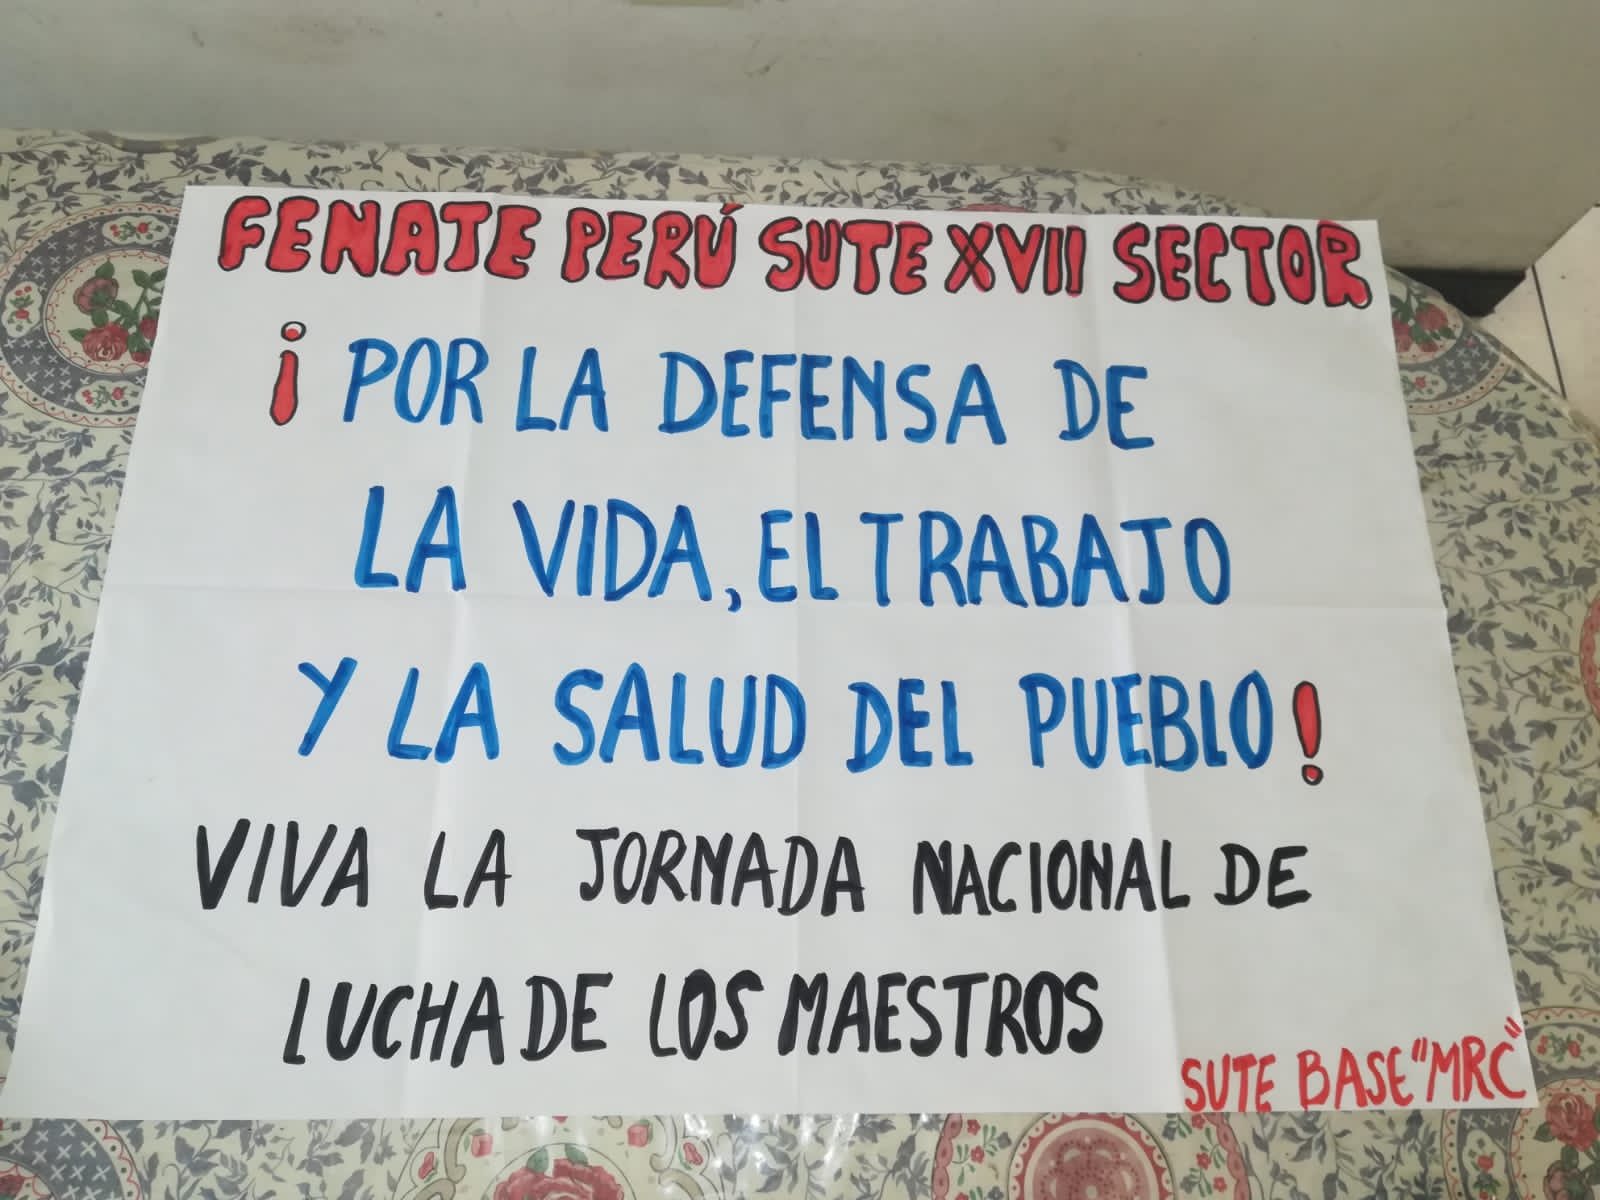 FENATE PERÚ SUTE XVII SECTOR
¡POR LA DEFENSA DE
LA VIDA, EL TRABAJO
Y LA SALUD DEL PUEBLO!
VIVA LA JORNADA NACIONAL DE
LUCHA DE LOS MAESTROS
SUTE BASE "MRC"